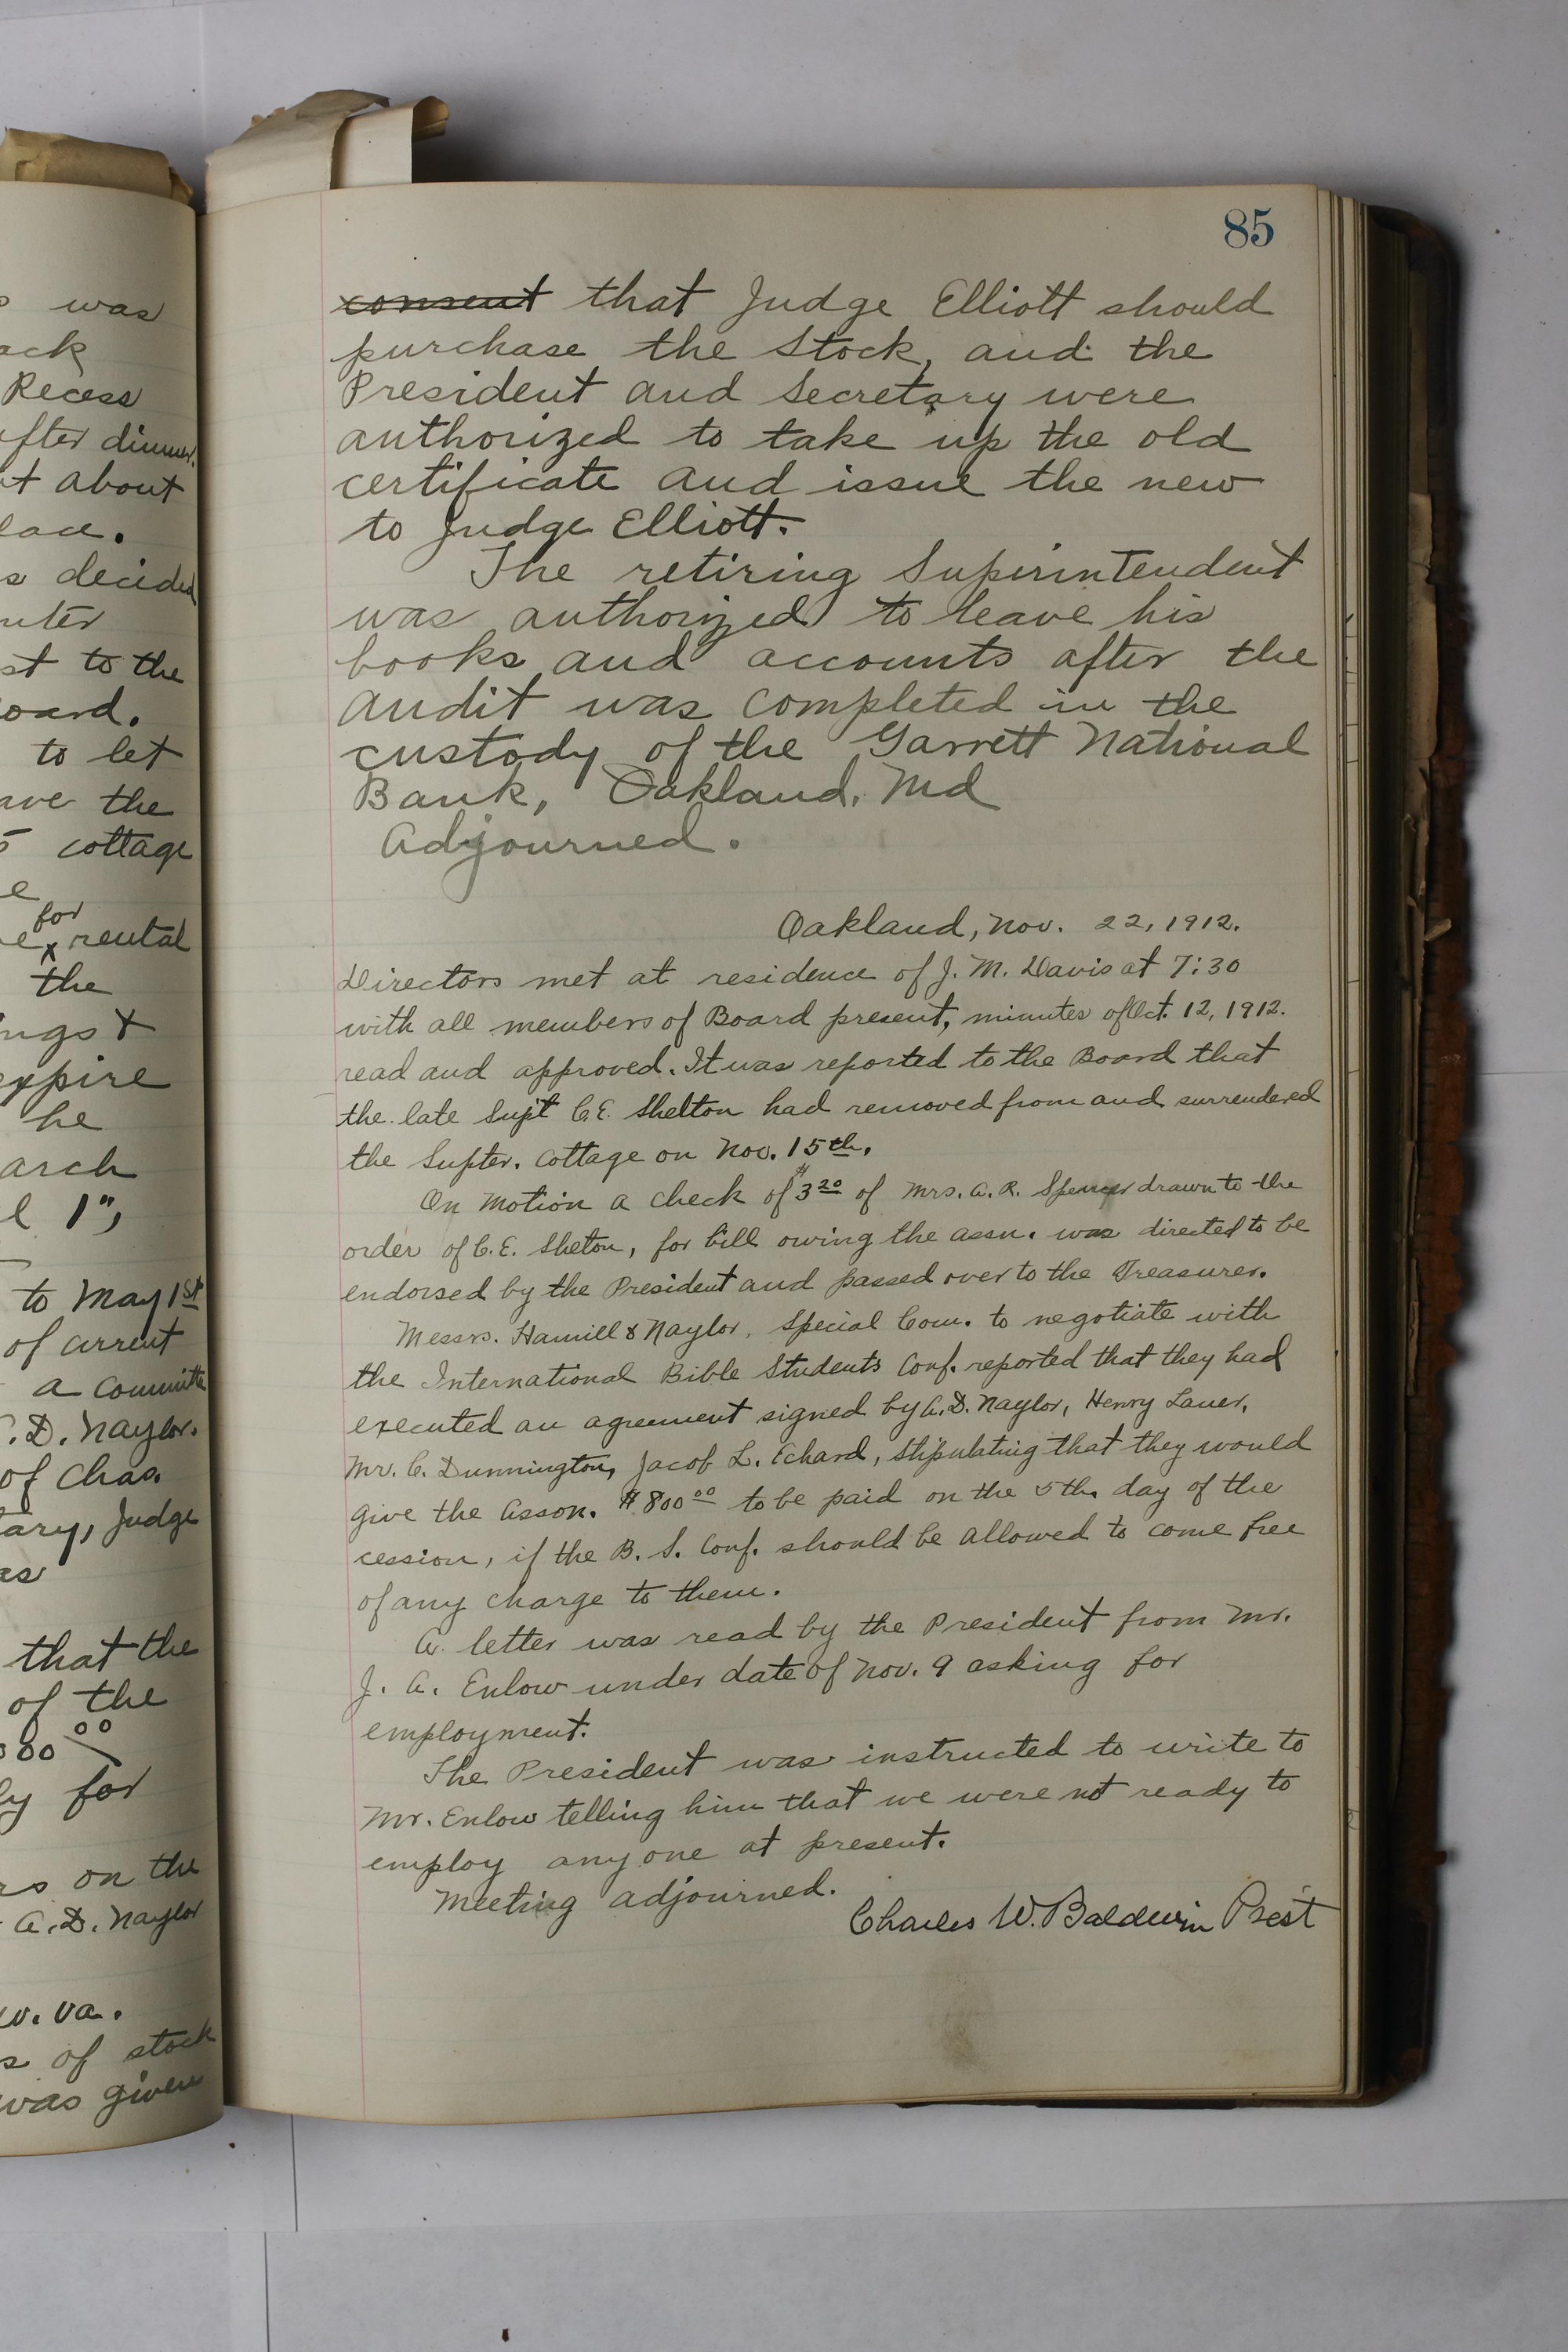 was
ack
Recess
after dinner.
t about
lace.
s decided
nter
st to the
oard.
to let
ave the
5 cottage
e
for
e x rental
the
ngs &
expire
he
arch
l 1",
to May 1st
of current
a committe
C. D. Naylor.
of Chas.
tary, Judge
as
that the
of the
000 00
ly for
rs on the
A. D. Naylor
W. Va.
s of stock
was given
85
consent that Judge Elliott should
purchase the Stock, and the
President and Secretary were
authorized to take up the old
certificate and issue the new
to Judge Elliott.
The retiring Superintendent
was authorized to leave his
books and accounts after the
audit was completed in the
custody of the Garrett National
Bank, Oakland, Md
Adjourned.
Oakland, Nov. 22, 1912.
Directors met at residence of J. M. Davis at 7:30
with all members of Board present, minutes of Oct. 12, 1912.
read and approved. It was reported to the Board that
the late Supt C. E. Shelton had removed from and surrendered
the Supter. Cottage on Nov. 15th.
On motion a check of $3 20 of Mrs. A. R. Spencer drawn to the
order of C. E. Shelton, for bill owing the assn. was directed to be
endorsed by the President and passed over to the Treasurer.
Messrs. Hamill & Naylor, Special Com. to negotiate with
the International Bible Students Conf. reported that they had
executed an agreement signed by A. D. Naylor, Henry Lauer,
Mr. C. Dunnington, Jacob L. Echard, stipulating that they would
give the Asson. $800 00 to be paid on the 5th day of the
cession, if the B. S. Conf. should be allowed to come free
of any charge to them.
A letter was read by the President from Mr.
J. A. Enlow under date of Nov. 9 asking for
employment.
The President was instructed to write to
Mr. Enlow telling him that we were not ready to
employ any one at present.
Meeting adjourned.
Charles W. Baldwin Prest